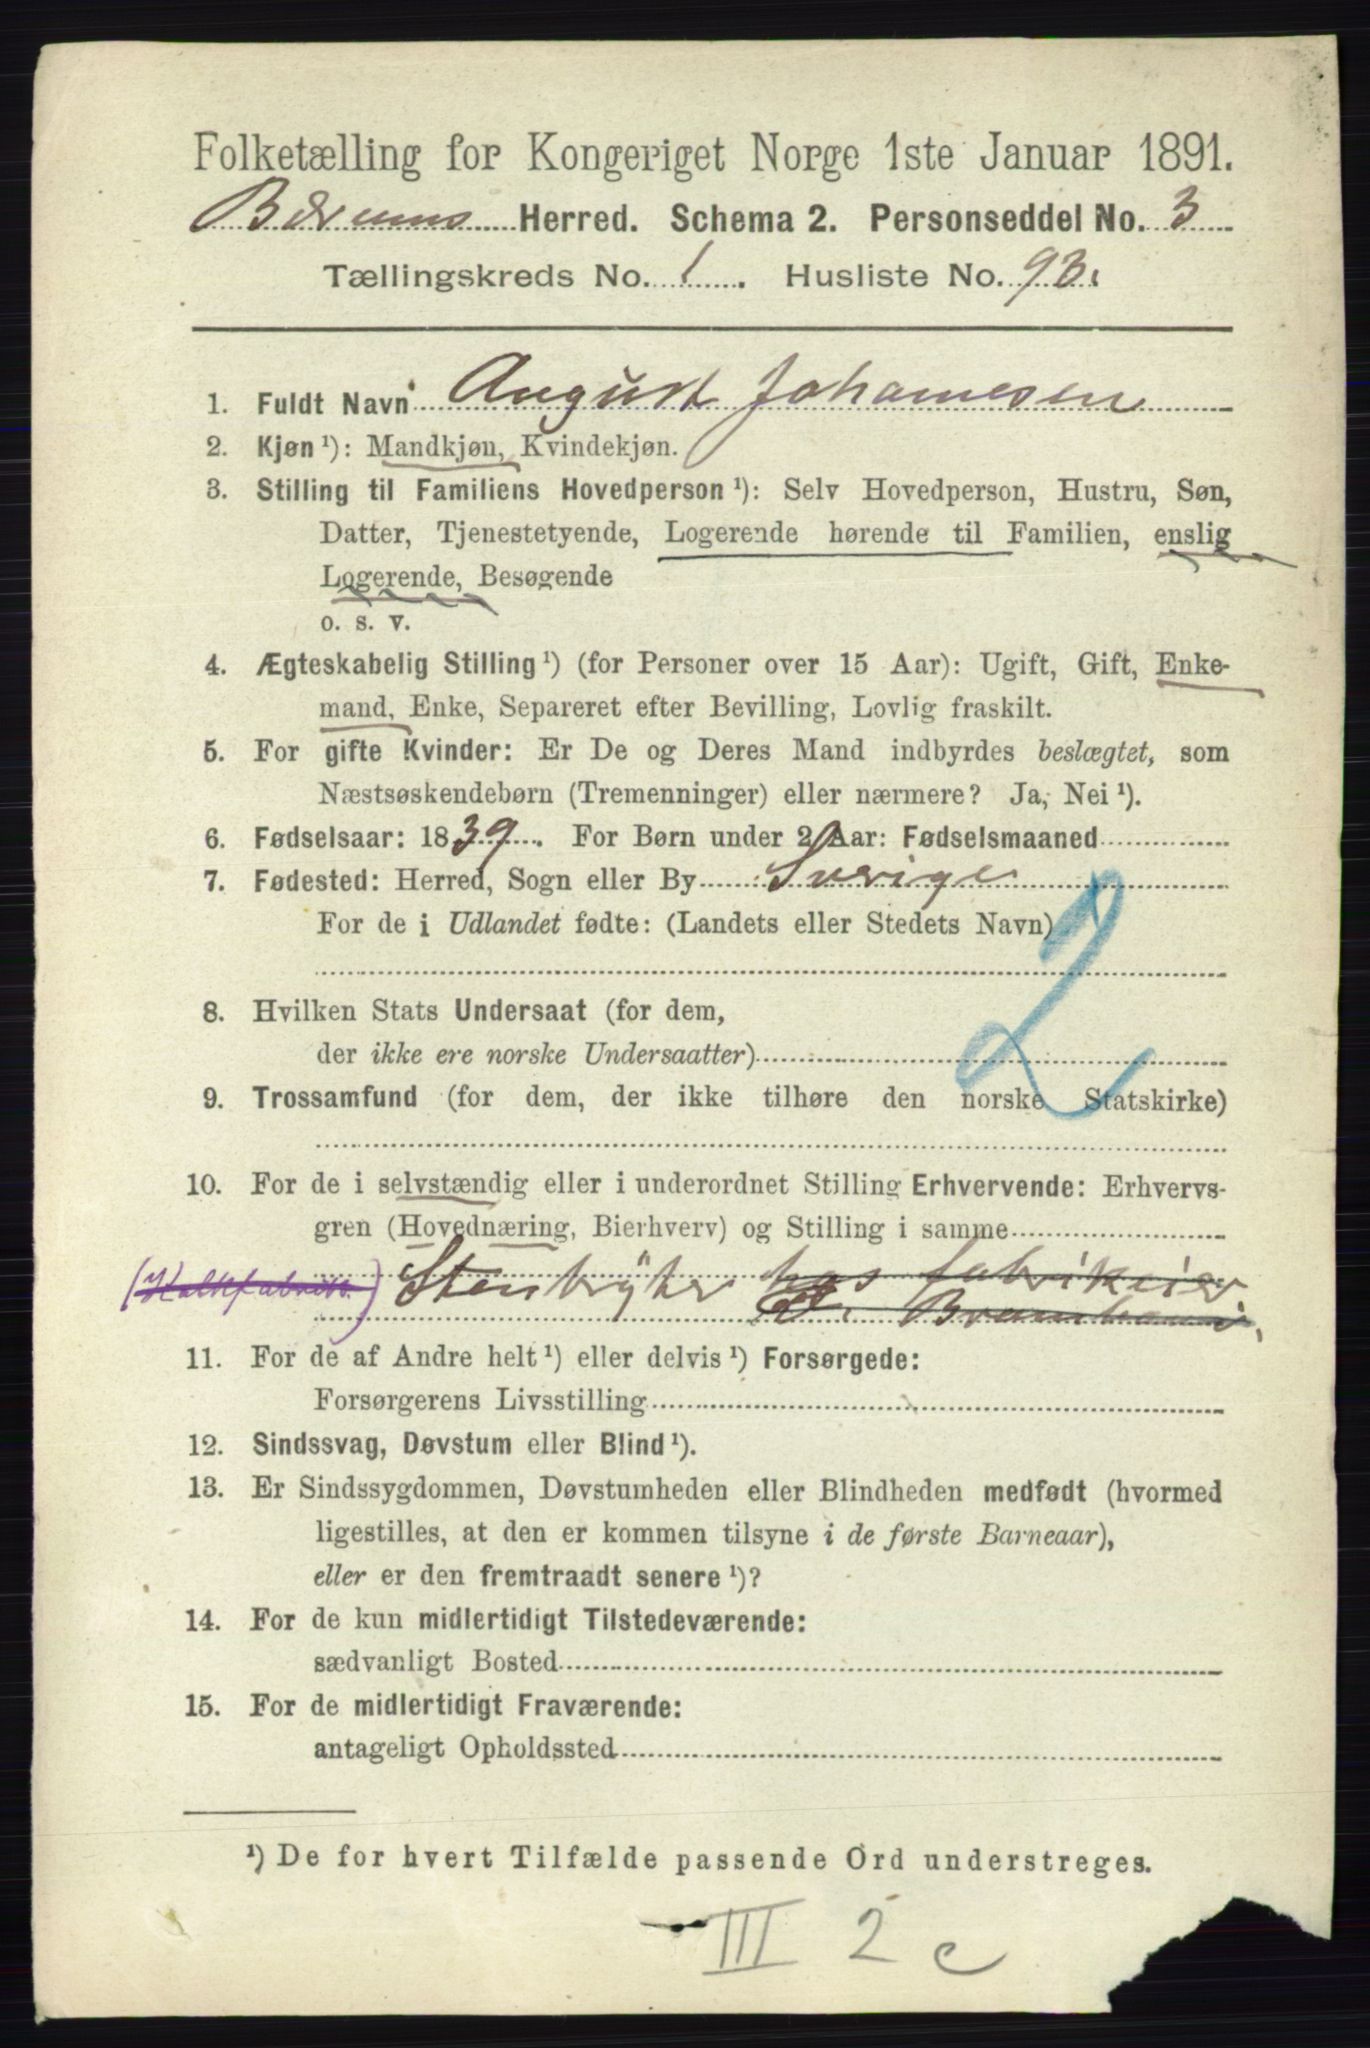 Folketælling for Kongeriget Norge 1ste Januar 1891.
Bærums Herred. Schema 2. Personseddel No. 3
Tællingskreds No. 1. Husliste No. 93.
1. Fuldt Navn August Johannesen
2. Kjøn ¹): Mandkjøn, Kvindekjøn.
3. Stilling til Familiens Hovedperson ¹): Selv Hovedperson, Hustru, Søn,
Datter, Tjenestetyende, Logerende hørende til Familien, enslig
Logerende, Besøgende
o. s. v.
4. Ægteskabelig Stilling ¹) (for Personer over 15 Aar): Ugift, Gift, Enke-
mand, Enke, Separeret efter Bevilling, Lovlig fraskilt.
5. For gifte Kvinder: Er De og Deres Mand indbyrdes beslægtet, som
Næstsøskendebørn (Tremenninger) eller nærmere? Ja, Nei ¹).
6. Fødselsaar: 1839. For Børn under 2 Aar: Fødselsmaaned
7. Fødested: Herred, Sogn eller By Sverige
For de i Udlandet fødte: (Landets eller Stedets Navn)
2
8. Hvilken Stats Undersaat (for dem,
der ikke ere norske Undersaatter)
9. Trossamfund (for dem, der ikke tilhøre den norske Statskirke)
10. For de i selvstændig eller i underordnet Stilling Erhvervende: Erhvervs-
gren (Hovednæring, Bierhverv) og Stilling i samme
(Kalkfabrik) Stenbryter hos fabrikeier
11. For de af Andre helt ¹) eller delvis ¹) Forsørgede:
Forsørgerens Livsstilling
12. Sindssvag, Døvstum eller Blind ¹).
13. Er Sindssygdommen, Døvstumheden eller Blindheden medfødt (hvormed
ligestilles, at den er kommen tilsyne i de første Barneaar),
eller er den fremtraadt senere ¹)?
14. For de kun midlertidigt Tilstedeværende:
sædvanligt Bosted
15. For de midlertidigt Fraværende:
antageligt Opholdssted
¹) De for hvert Tilfælde passende Ord understreges.
III 2 c